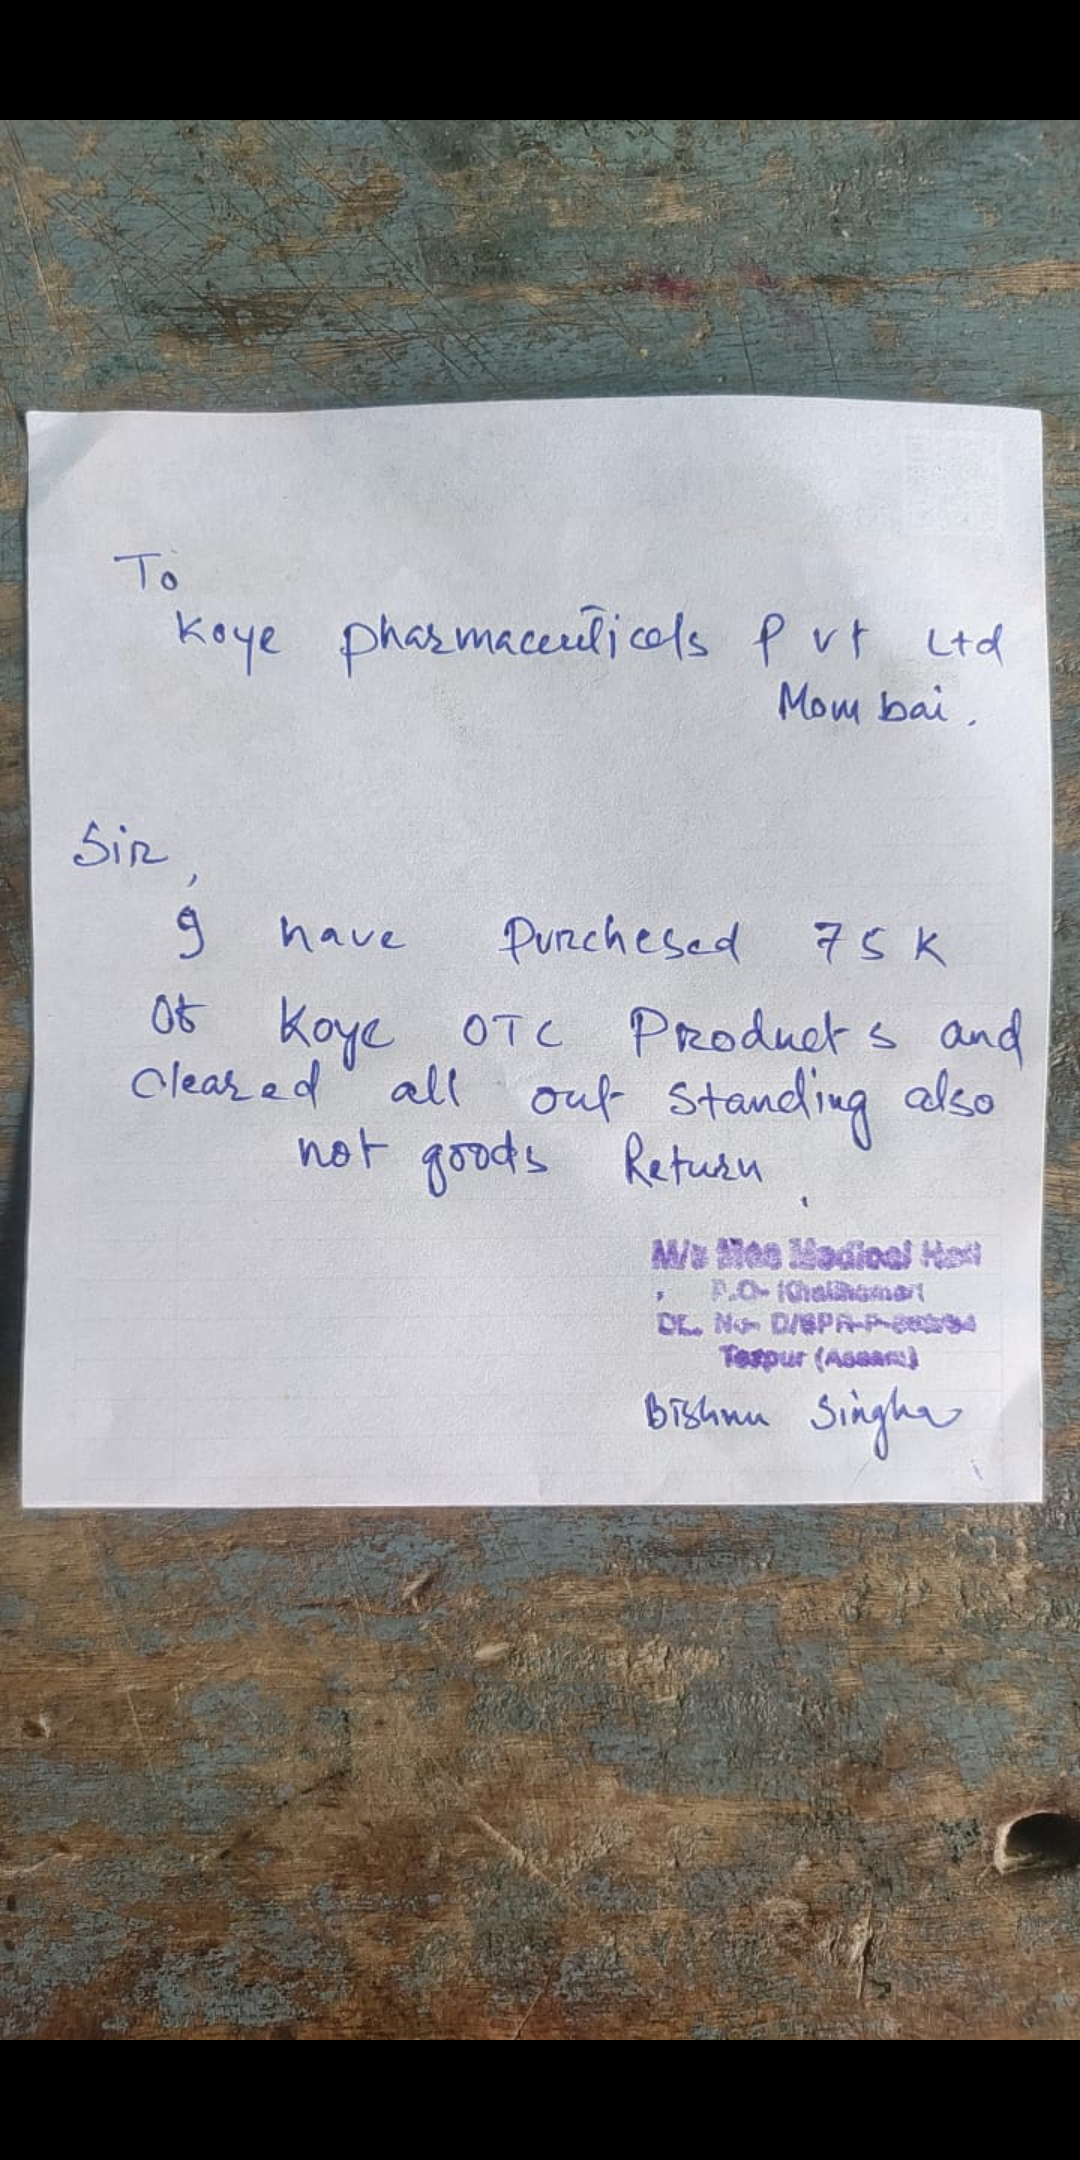 To
Koye pharmaceuticals Pvt Ltd
Mombai.
Sir,
I have Purchesed 75K
Of Koye OTC Products and
Cleared all out standing also
not goods Return.
M/s Medical Hall
P.O-
DL. No-
Tezpur (Assam)
Bishnu Singha